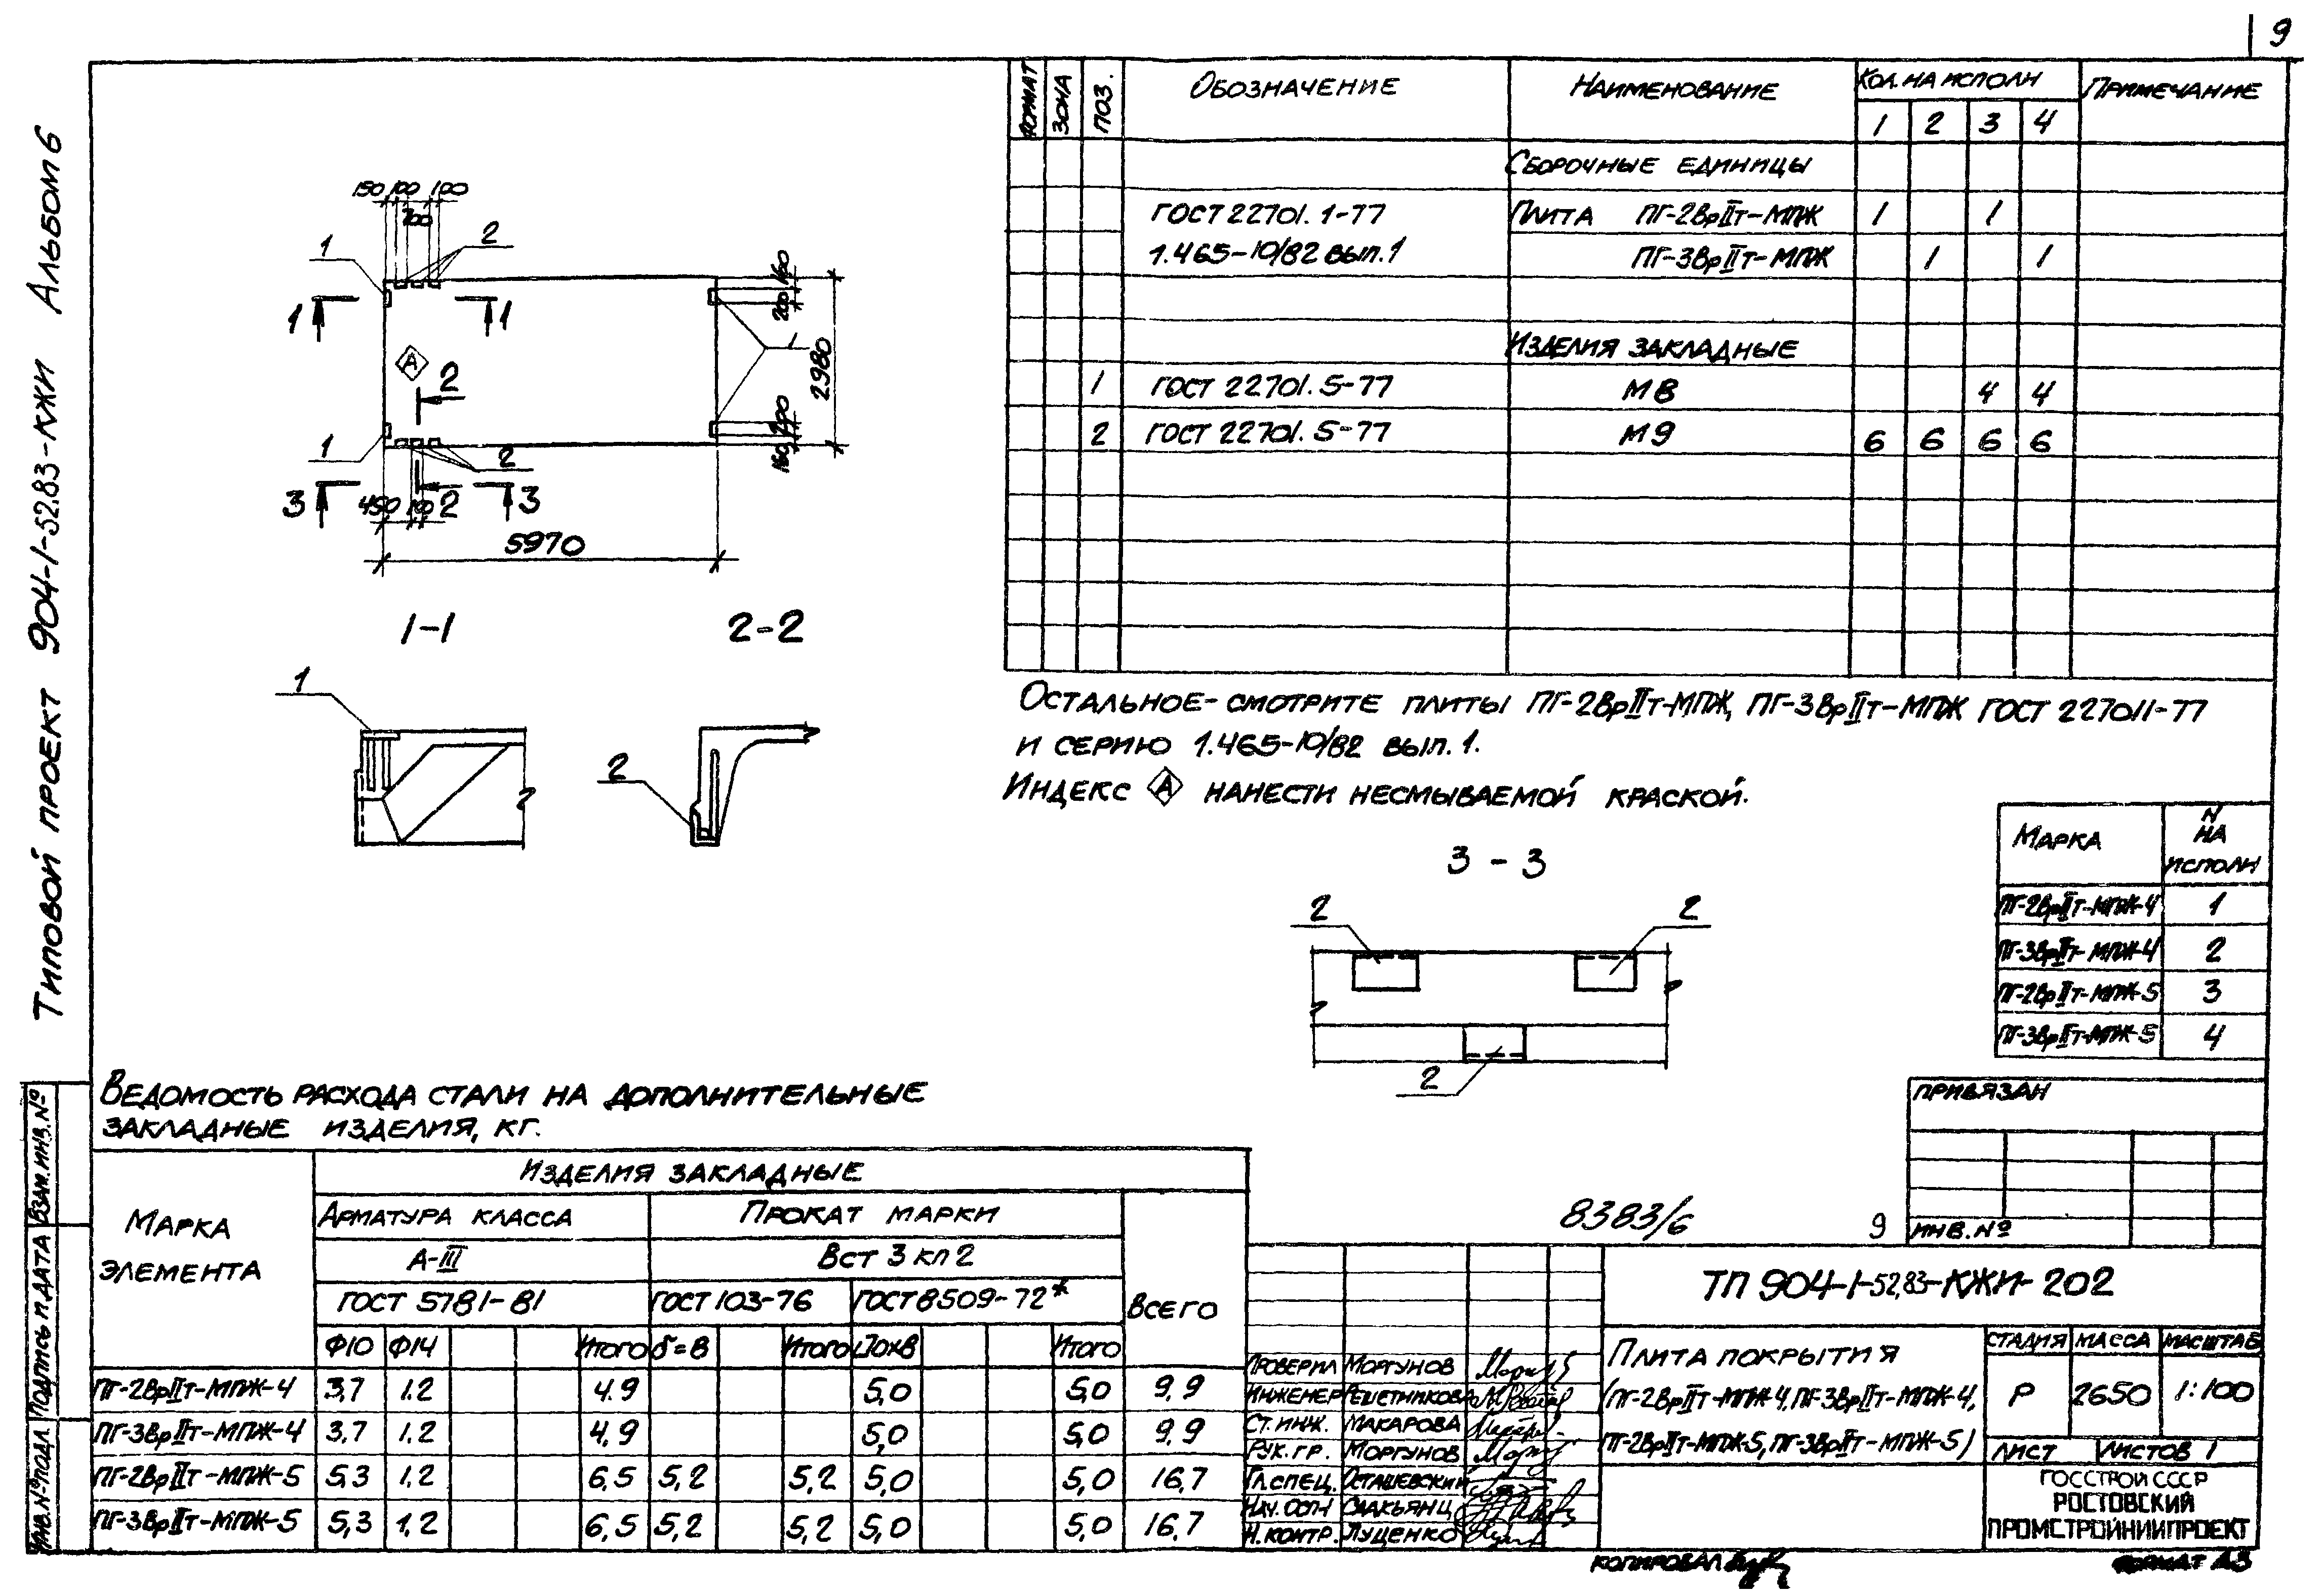 9
Типовой проект 904-1-52.83-КЖИ Альбом 6
150 100 100
200
1 2
160
200
1 1
А
2
1
2980
200
160
1 2
3 3
450 100 2
5970
1-1 2-2
1
2
Формат Зона Поз. Обозначение Наименование Кол. на исполн Примечание
1 2 3 4
Сборочные единицы
ГОСТ 22701.1-77 Плита ПГ-2ВрIIт-МПЖ 1 1
1.465-10/82 вып.1 ПГ-3ВрIIт-МПЖ 1 1
Изделия закладные
1 ГОСТ 22701.5-77 М8 4 4
2 ГОСТ 22701.5-77 М9 6 6 6 6
Остальное-смотрите плиты ПГ-2ВрIIт-МПЖ, ПГ-3ВрIIт-МПЖ ГОСТ 22701.1-77
и серию 1.465-10/82 вып.1.
Индекс А нанести несмываемой краской.
3-3
2 2
2
Марка N на исполн
ПГ-2ВрIIт-МПЖ-4 1
ПГ-3ВрIIт-МПЖ-4 2
ПГ-2ВрIIт-МПЖ-5 3
ПГ-3ВрIIт-МПЖ-5 4
Привязан
Инв.№
8383/6 9
Ведомость расхода стали на дополнительные
закладные изделия, кг.
Марка элемента
Изделия закладные
Арматура класса Прокат марки
А-III Вст 3 кп 2
ГОСТ 5781-81 ГОСТ 103-76 ГОСТ 8509-72* Всего
Ф10 Ф14 Итого δ=8 Итого L70х8 Итого
ПГ-2ВрIIт-МПЖ-4 3,7 1.2 4.9 5,0 5,0 9,9
ПГ-3ВрIIт-МПЖ-4 3,7 1.2 4,9 5,0 5,0 9,9
ПГ-2ВрIIт-МПЖ-5 5,3 1.2 6,5 5,2 5,2 5,0 5,0 16,7
ПГ-3ВрIIт-МПЖ-5 5,3 1,2 6,5 5,2 5,2 5,0 5,0 16,7
Инв.№ подл. Подпись и дата Взам.инв.№
ТП 904-1-52.83-КЖИ-202
Проверил Моргунов
Инженер Решетникова
Ст.инж. Макарова
Рук.гр. Моргунов
Гл.спец. Осташевский
Нач.ОСП-1 Саакьянц
Н.контр. Луценко
Плита покрытия
(ПГ-2ВрIIт-МПЖ-4, ПГ-3ВрIIт-МПЖ-4,
ПГ-2ВрIIт-МПЖ-5, ПГ-3ВрIIт-МПЖ-5)
Стадия Масса Масштаб
Р 2650 1:100
Лист Листов 1
Госстрой СССР
Ростовский
Промстройниипроект
Копировал Формат А3